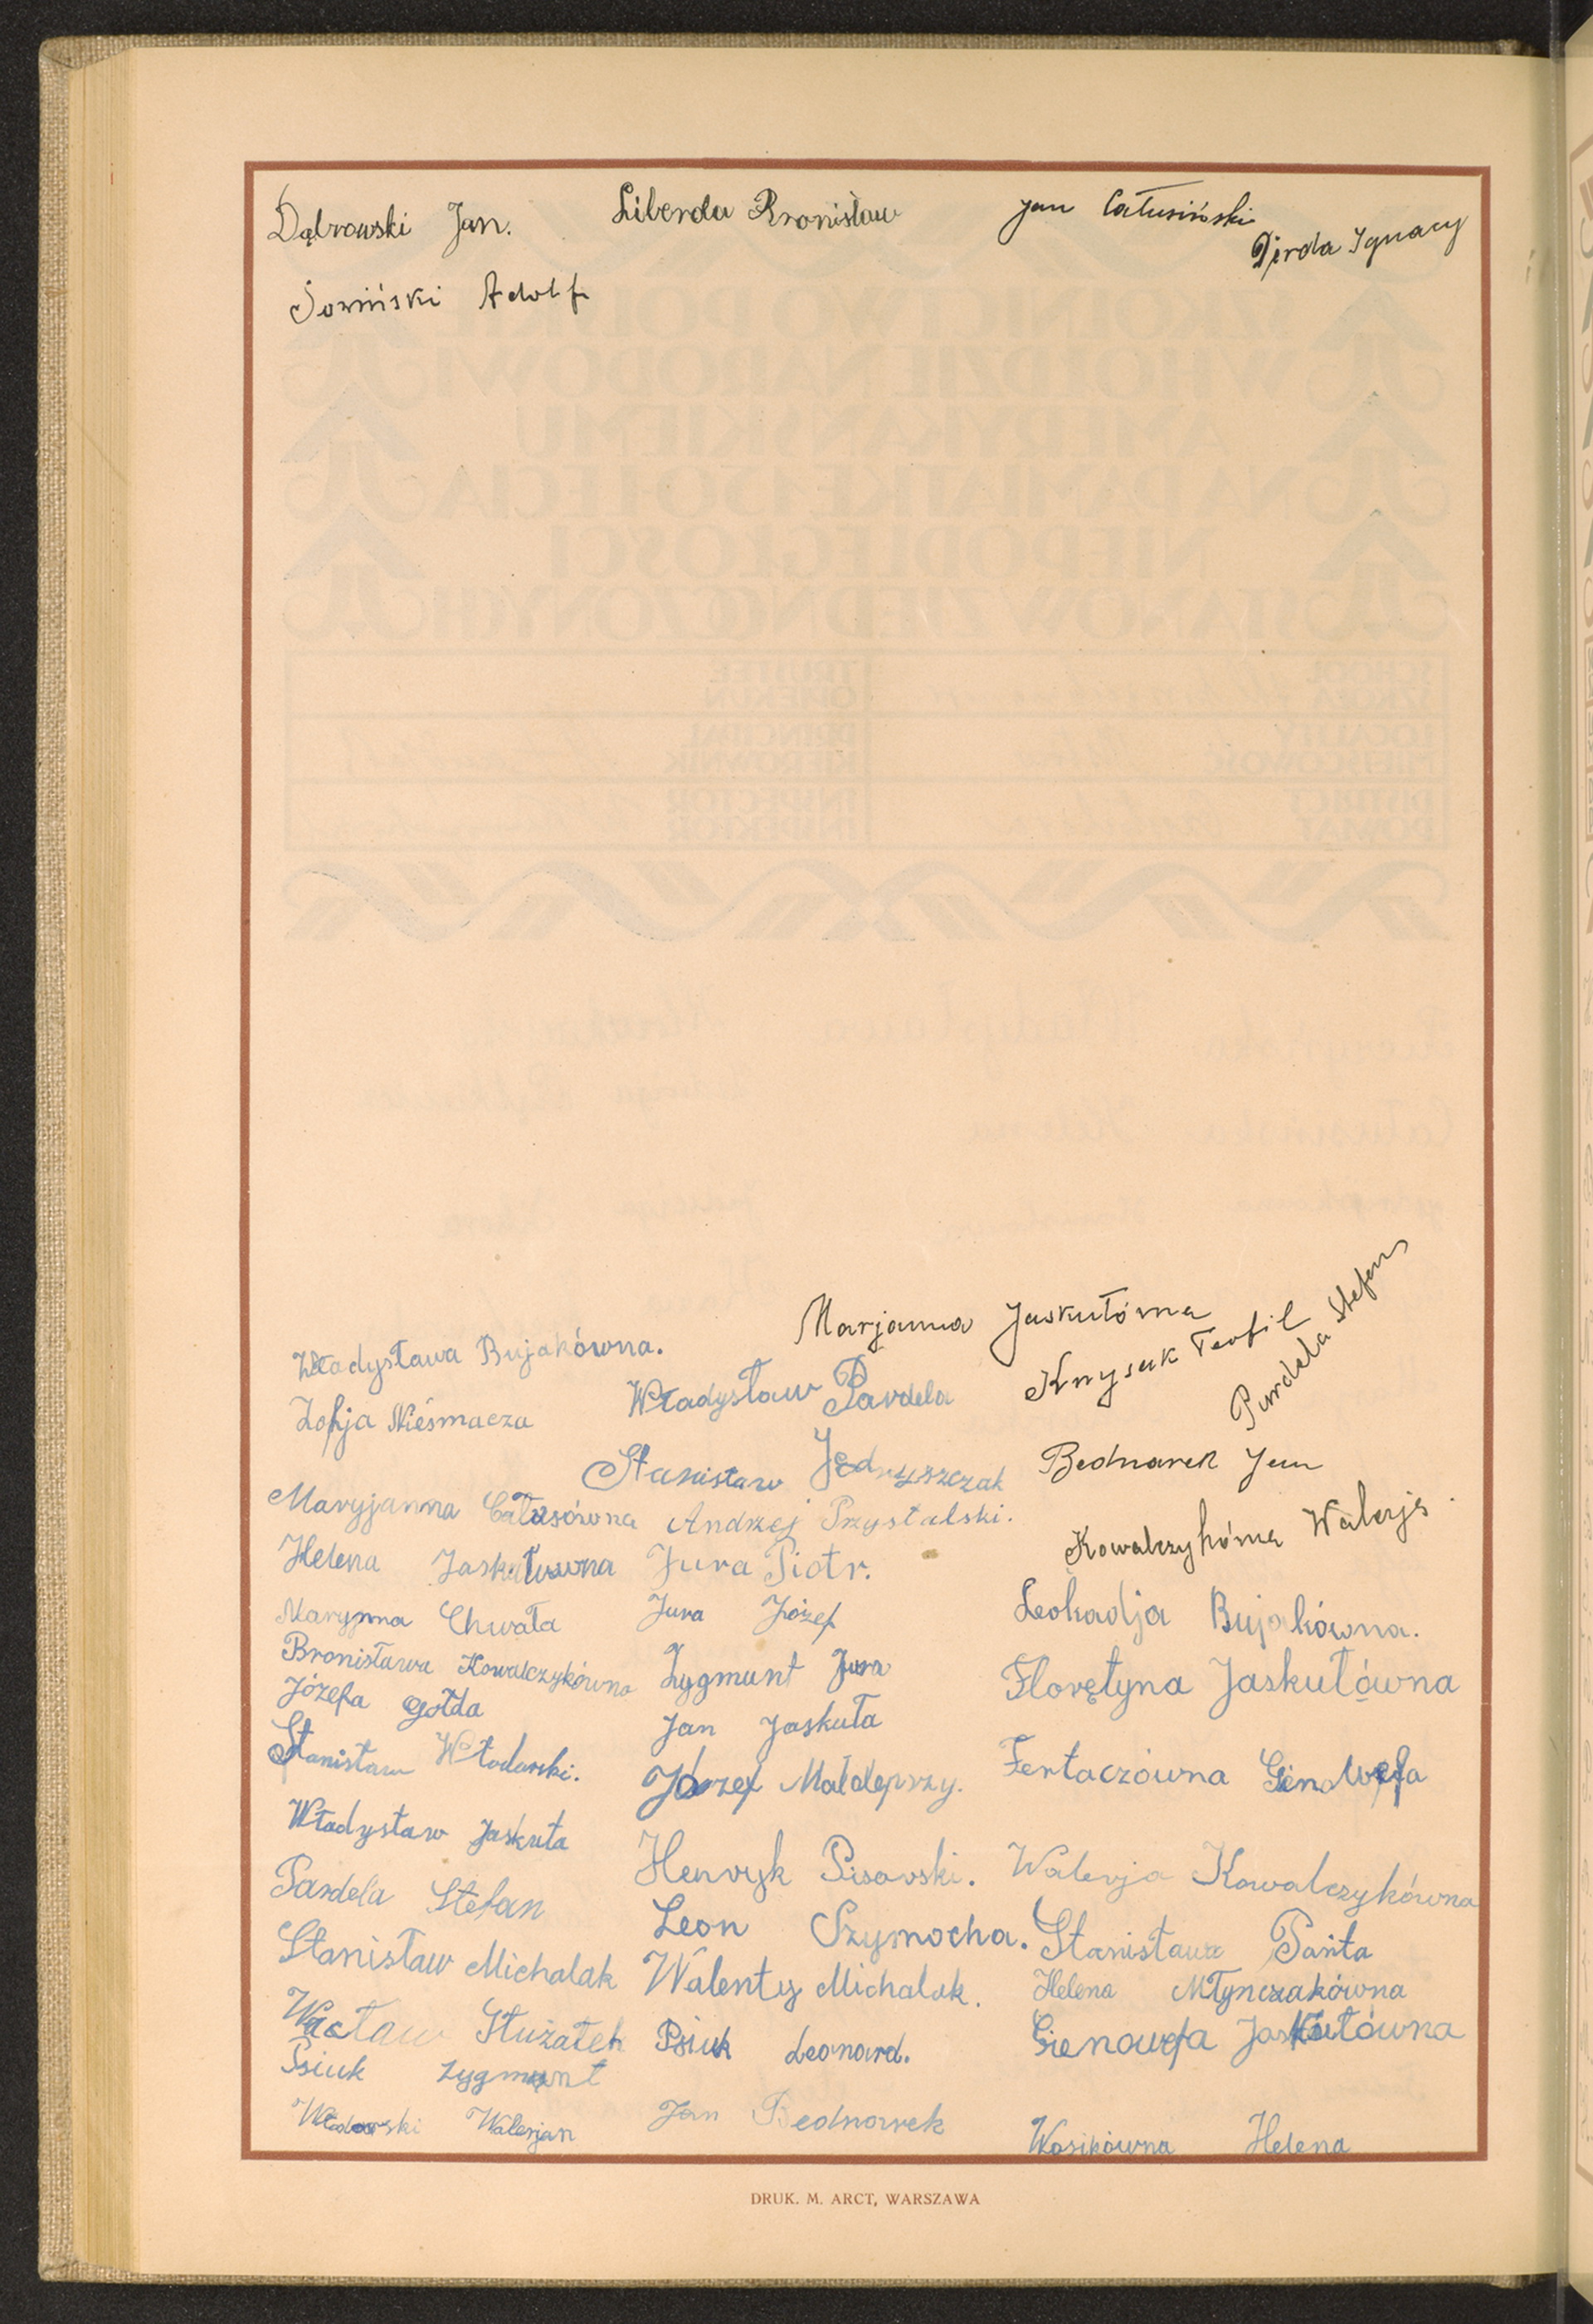 Dąbrowski Jan.
Liberda Bronisław
Jan Całusiński
Dirda Ignacy
Sowiński Adolf
Marjanna Jaskułówna
Knysak Teofil
Pardela Stefan
Władysława Bujakówna.
Władysław Pardela
Zofja Nieśmacza
Stanisław Jędryszczak
Bednarek Jan
Maryjanna Całusówna
Andrzej Przystalski.
Kowalczykówna Walerja
Helena Jaskułuwna
Jura Piotr.
Maryjnna Chwała
Jura Józef
Leokadja Bujakówna.
Bronisława Kowalczykówna
Zygmunt Jura
Florętyna Jaskułówna
Józefa Gołda
Jan Jaskuła
Stanisław Włodarski.
Józef Małolepszy.
Fertaczówna Gendwefa
Władysław Jaskuła
Henryk Pisarski.
Walerja Kowalczykówna
Pardela Stefan
Leon Szymocha.
Stanisława Pańta
Stanisław Michalak
Walenty Michalak.
Helena Młynczakówna
Wacław Stużałek
Psiuk Leonard.
Gienowefa Jaskułówna
Psiuk Zygmunt
Walerjan
Jan Bednarek
Wosikówna Helena
DRUK. M. ARCT, WARSZAWA